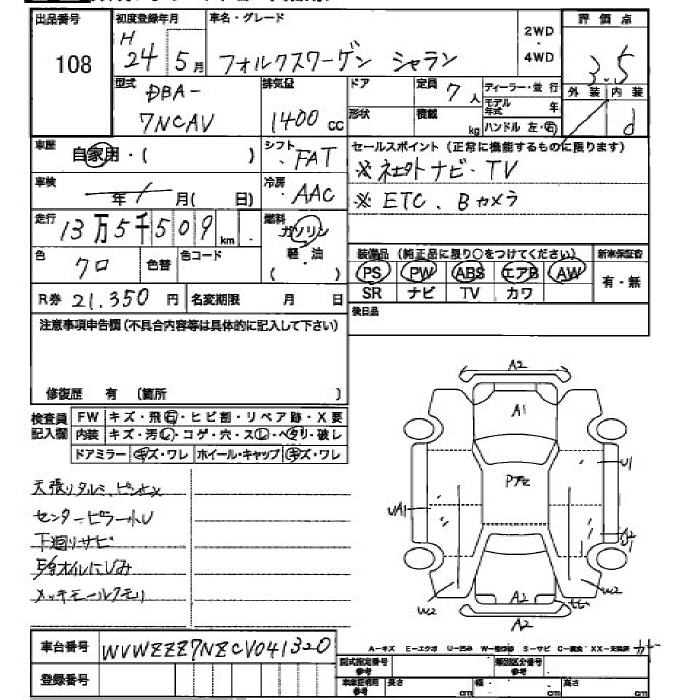 出品番号 初度登録年月 車名・グレード 2WD 評価点
108 H 24年 5月 フォルクスワーゲン シャラン ・ 4WD 3.5
型式 排気量 ドア 定員 7人 ディーラー・並行 外装 内装
DBA- モデル年式 年
7NCAV 1400cc 形状 積載 kg ハンドル 左・右 d
車歴 自家用・( ) シフト FAT セールスポイント(正常に機能するものに限ります)
車検 年 月( 日) 冷房 AAC ※社外ナビ・TV
※ETC、Bカメラ
走行 13万5千509km 燃料 ガソリン
色 クロ 色替 色コード 軽・油 装備品(純正品に限り○をつけてください) 新車保証書
( ) PS PW ABS エアB AW 有・無
R券 21,350円 名変期限 月 日 SR ナビ TV カワ
注意事項申告欄(不具合内容等は具体的に記入して下さい) 後日品
修復歴 有 (箇所 )
検査員記入欄 FW キズ・飛石・ヒビ割・リペア跡・X要
内装 キズ・汚レ・コゲ・穴・スレ・ヘタリ・破レ
ドアミラー キズ・ワレ ホイール・キャップ キズ・ワレ
天張りタルミ、ピンホメ
センターピラー小U
下廻りサビ
E/gオイルにじみ
メッキモールクモリ
A2
A1
U1
UA1
A2
U1
W2
A2
W2
A2
車台番号 WVWZZZ7NZCV041320
A-キズ E-エクボ U-凹み W-補修跡 S-サビ C-腐食 XX-交換済
登録番号 型式指定番号 類別区分番号
車庫証明用 長さ cm 幅 cm 高さ cm